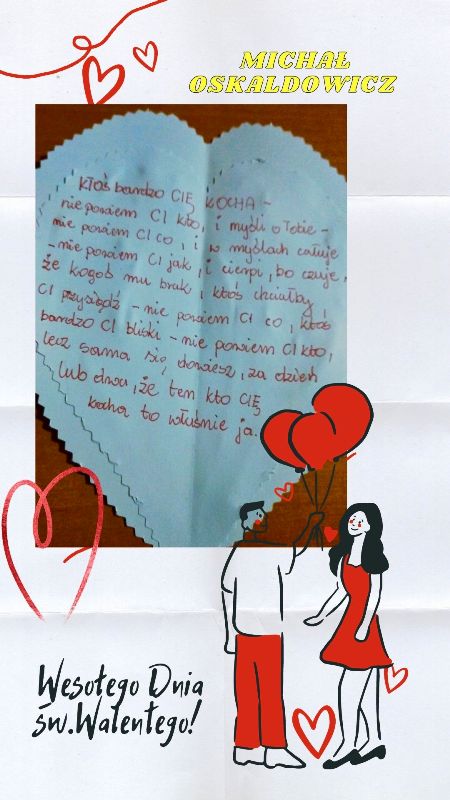 MICHAŁ
OSKALDOWICZ
KTOŚ bardzo CIĘ KOCHA -
nie powiem CI kto, i myśli o Tobie -
nie powiem CI co, i w myślach całuje
- nie powiem CI jak, i cierpi, bo czuje,
że kogoś mu brak, i ktoś chciałby
CI przysiądz - nie powiem CI co, ktoś
bardzo CI bliski - nie powiem CI kto,
lecz sama się dowiesz, za dzień
lub dwa, że ten kto CIĘ
kocha to właśnie ja.
Wesołego Dnia
św.Walentego!